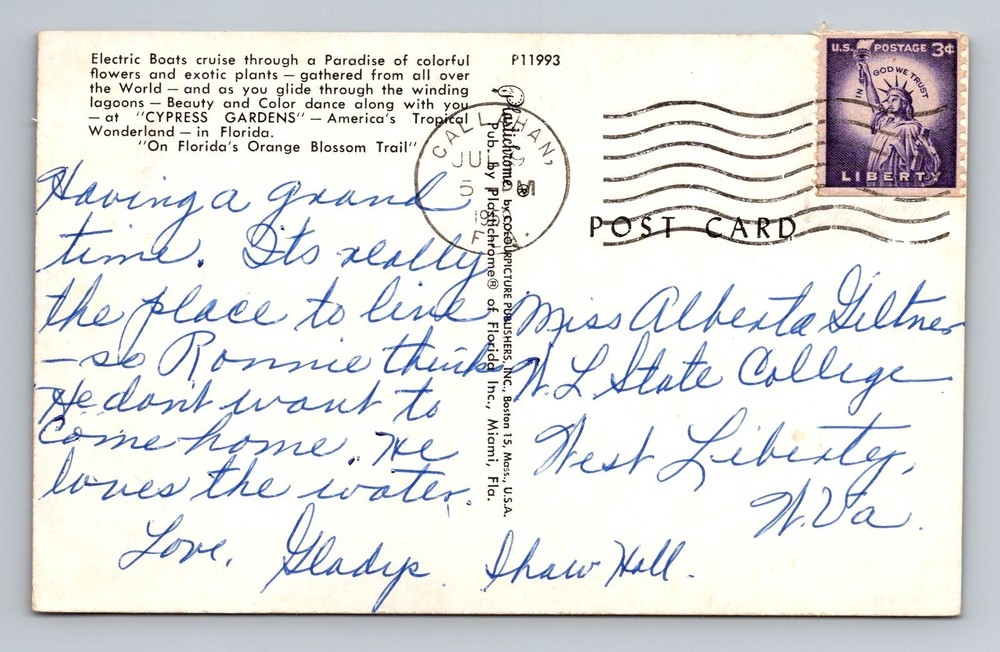 Electric Boats cruise through a Paradise of colorful
flowers and exotic plants — gathered from all over
the World — and as you glide through the winding
lagoons — Beauty and Color dance along with you
— at "CYPRESS GARDENS" — America's Tropical
Wonderland — in Florida.
"On Florida's Orange Blossom Trail"
P11993
Plastichrome ® by COLOURPICTURE PUBLISHERS, INC., Boston 15, Mass., U.S.A.
Pub. by Plastichrome® of Florida Inc., Miami, Fla.
CALL HAN,
JUL
5 M
U.S. POSTAGE 3¢
IN GOD WE TRUST
LIBERTY
POST CARD
Having a grand
time. Its really
the place to live
— so Ronnie thinks
He dont want to
come home. He
loves the water.
Love, Gladys
Miss Alberta Giltner
W. L State College
West Liberty,
W. Va.
Shaw Hall.